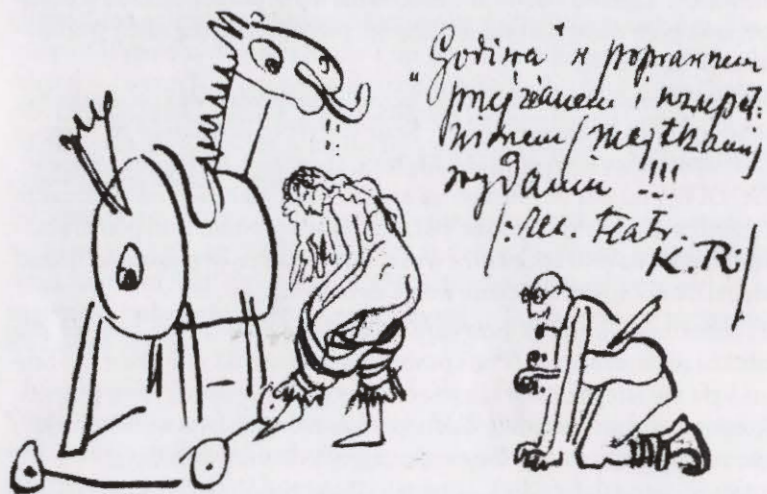 „Godiva" w poprawnem
przejrzanem i uzupeł-
nionem /majtkami/
wydaniu !!!
/: rec. teatr.
K. R:/